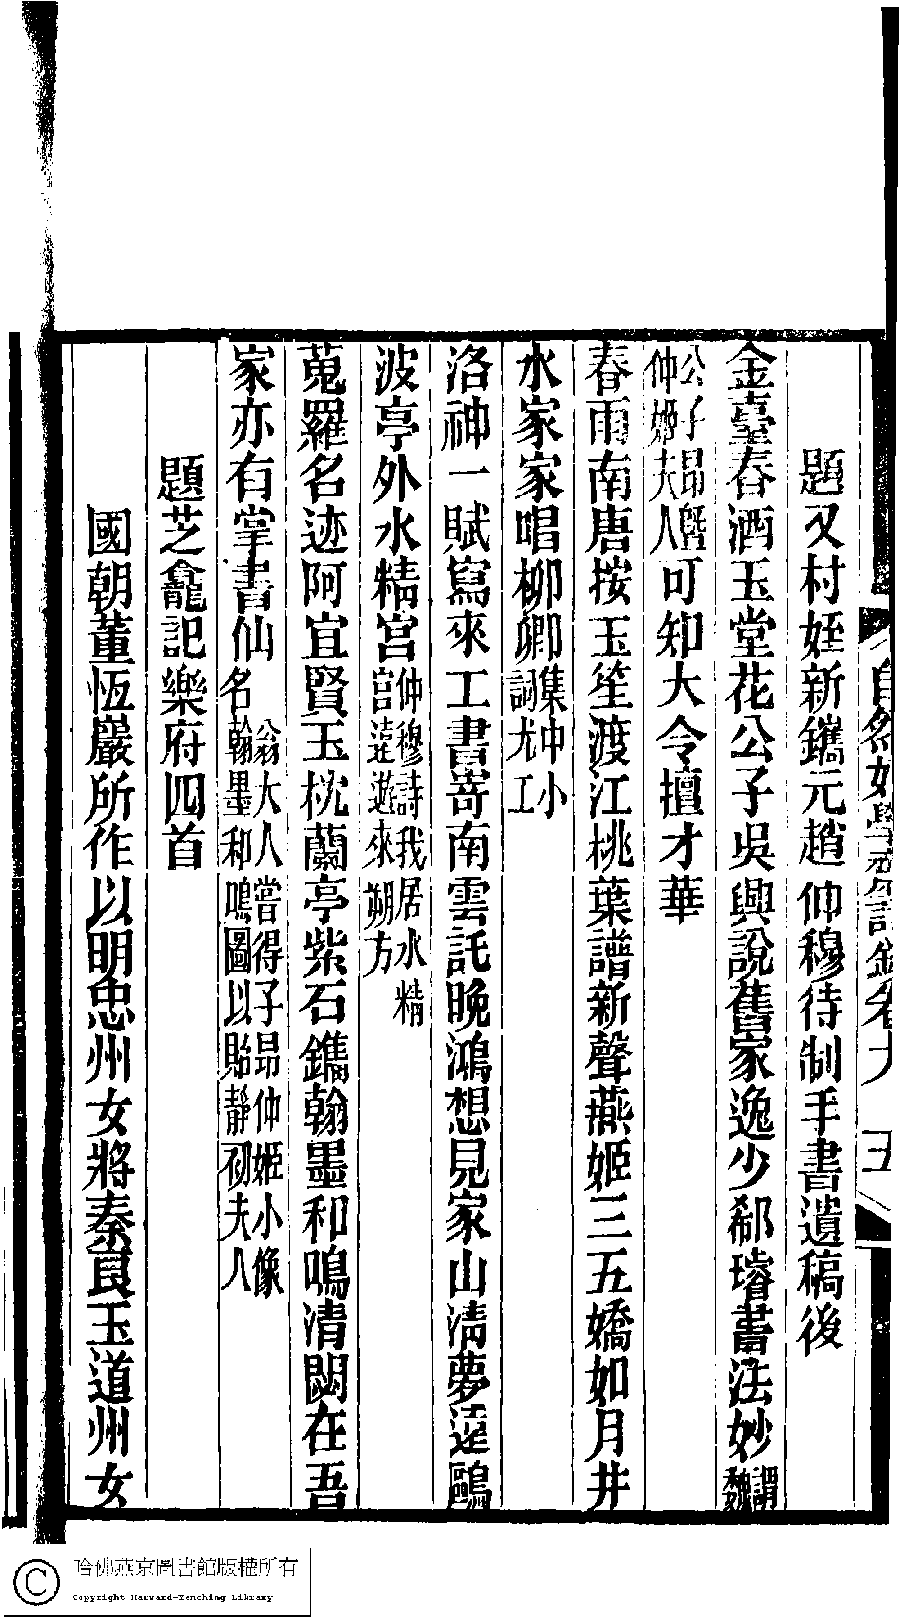 自然好學齋詩鈔卷九 五
題又村姪新鐫元趙仲穆待制手書遺稿後
金臺春酒玉堂花公子吳興說舊家逸少郗璿書法妙謂魏
公子昂暨
仲姬夫人可知大令擅才華
春雨南唐按玉笙渡江桃葉譜新聲燕姬三五嬌如月井
水家家唱柳卿集中小
詞尤工
洛神一賦寫來工書寄南雲託晚鴻想見家山清夢遠鷗
波亭外水精宮仲穆詩我居水精
宮遠遊來朔方
蒐羅名迹阿宜賢玉枕蘭亭紫石鐫翰墨和鳴清閟在吾
家亦有掌書仙翁大人嘗得子昂仲姬小像
名翰墨和鳴圖以貽靜初夫人
題芝龕記樂府四首
國朝董恆巖所作以明忠州女將秦良玉道州女
哈佛燕京圖書館版權所有
Copyright Harvard-Yenching Library